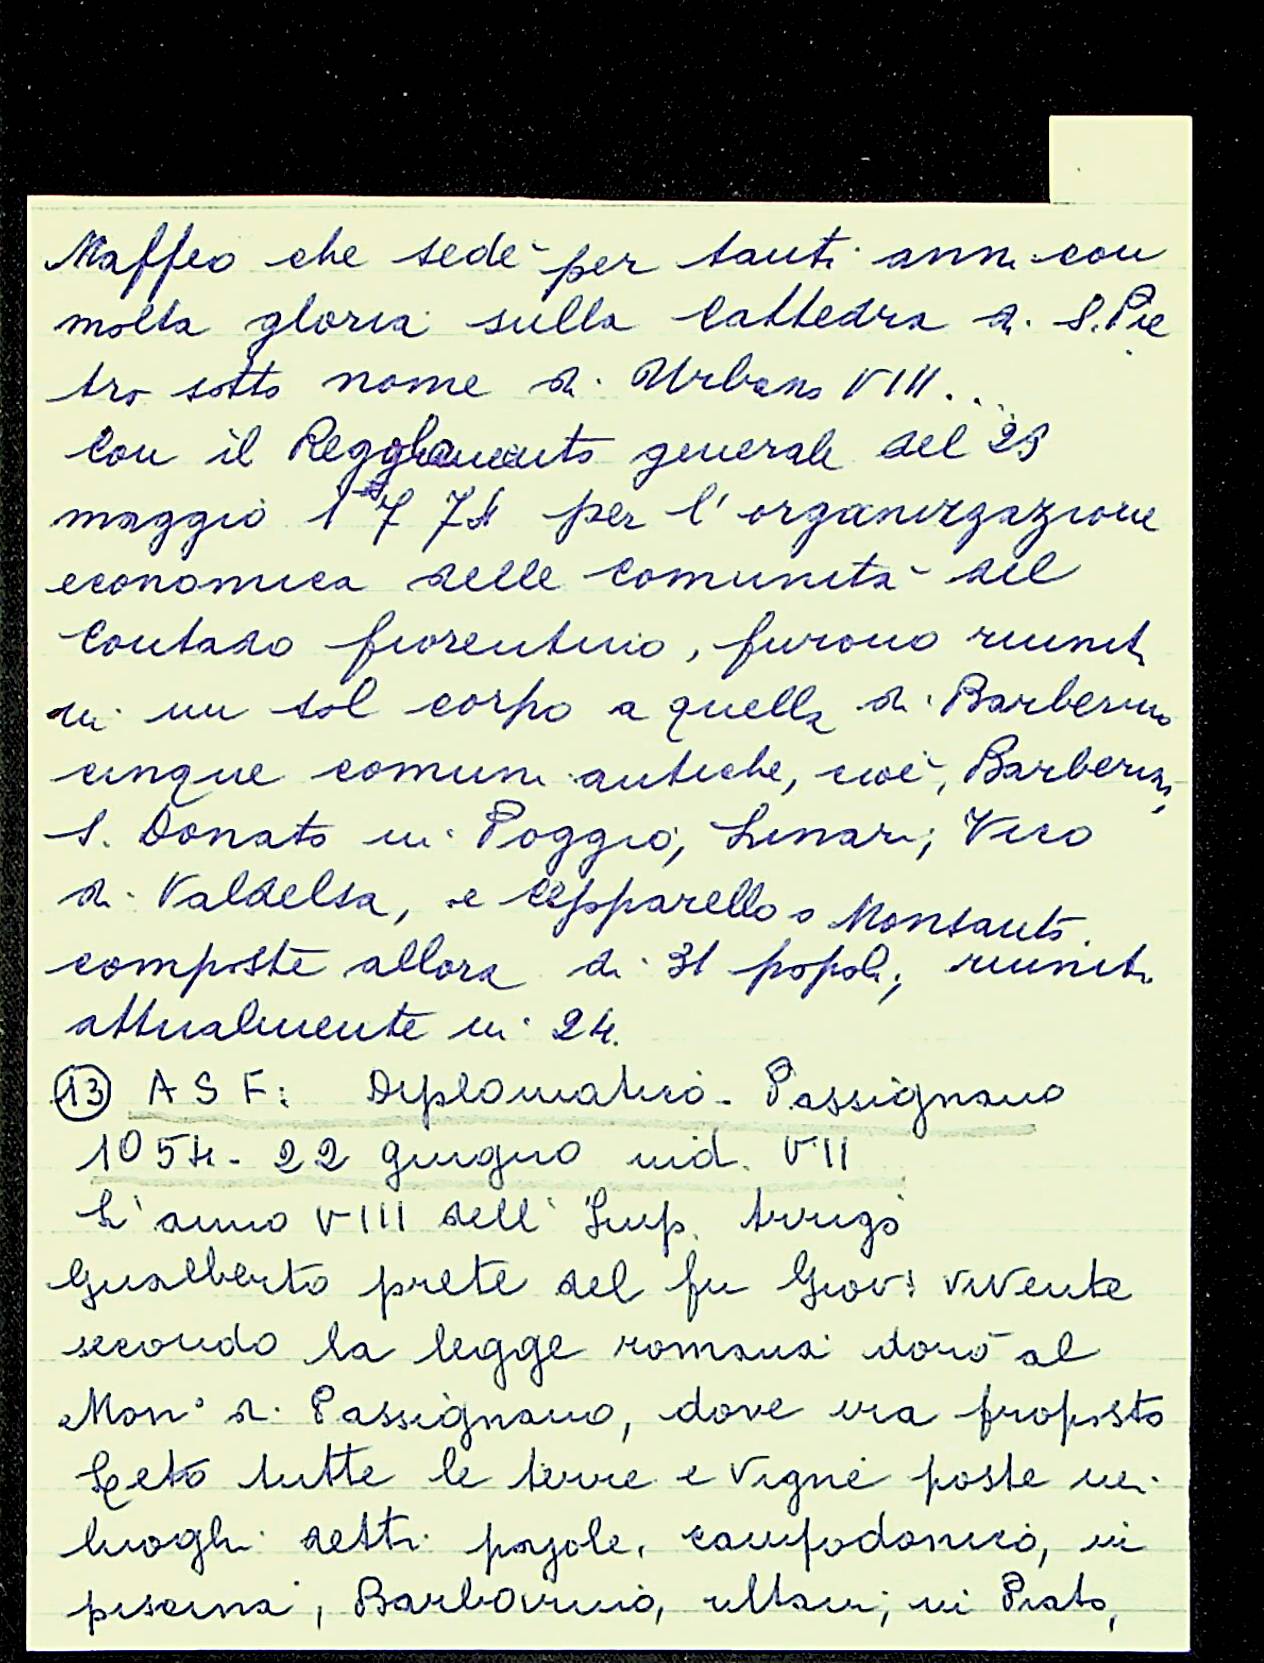 Maffeo che sedè per tanti anni con
molta gloria sulla Cattedra di S. Pie
tro sotto nome di Urbano VIII...
Con il Regolamento generale del 23
maggio 1774 per l'organizzazione
economica delle comunità del
Contado fiorentino, furono riunite
in un sol corpo a quella di Barberino
cinque comuni antiche, cioè, Barberino,
S. Donato in Poggio, Linari, Vico
di Valdelsa, e Cepparello o Monsanto.
composte allora di 31 popoli, riuniti
attualmente in 24.
13 ASF: Diplomatico - Passignano
1054 - 22 giugno ind. VII
L'anno VIII dell' Imp. Arrigo
Gualberto prete del fu Giov: vivente
secondo la legge romana donò al
Mon° di Passignano, dove era proposto
Leto tutte le terre e vigne poste nei
luoghi detti campodonico, in
piscina, in Prato,